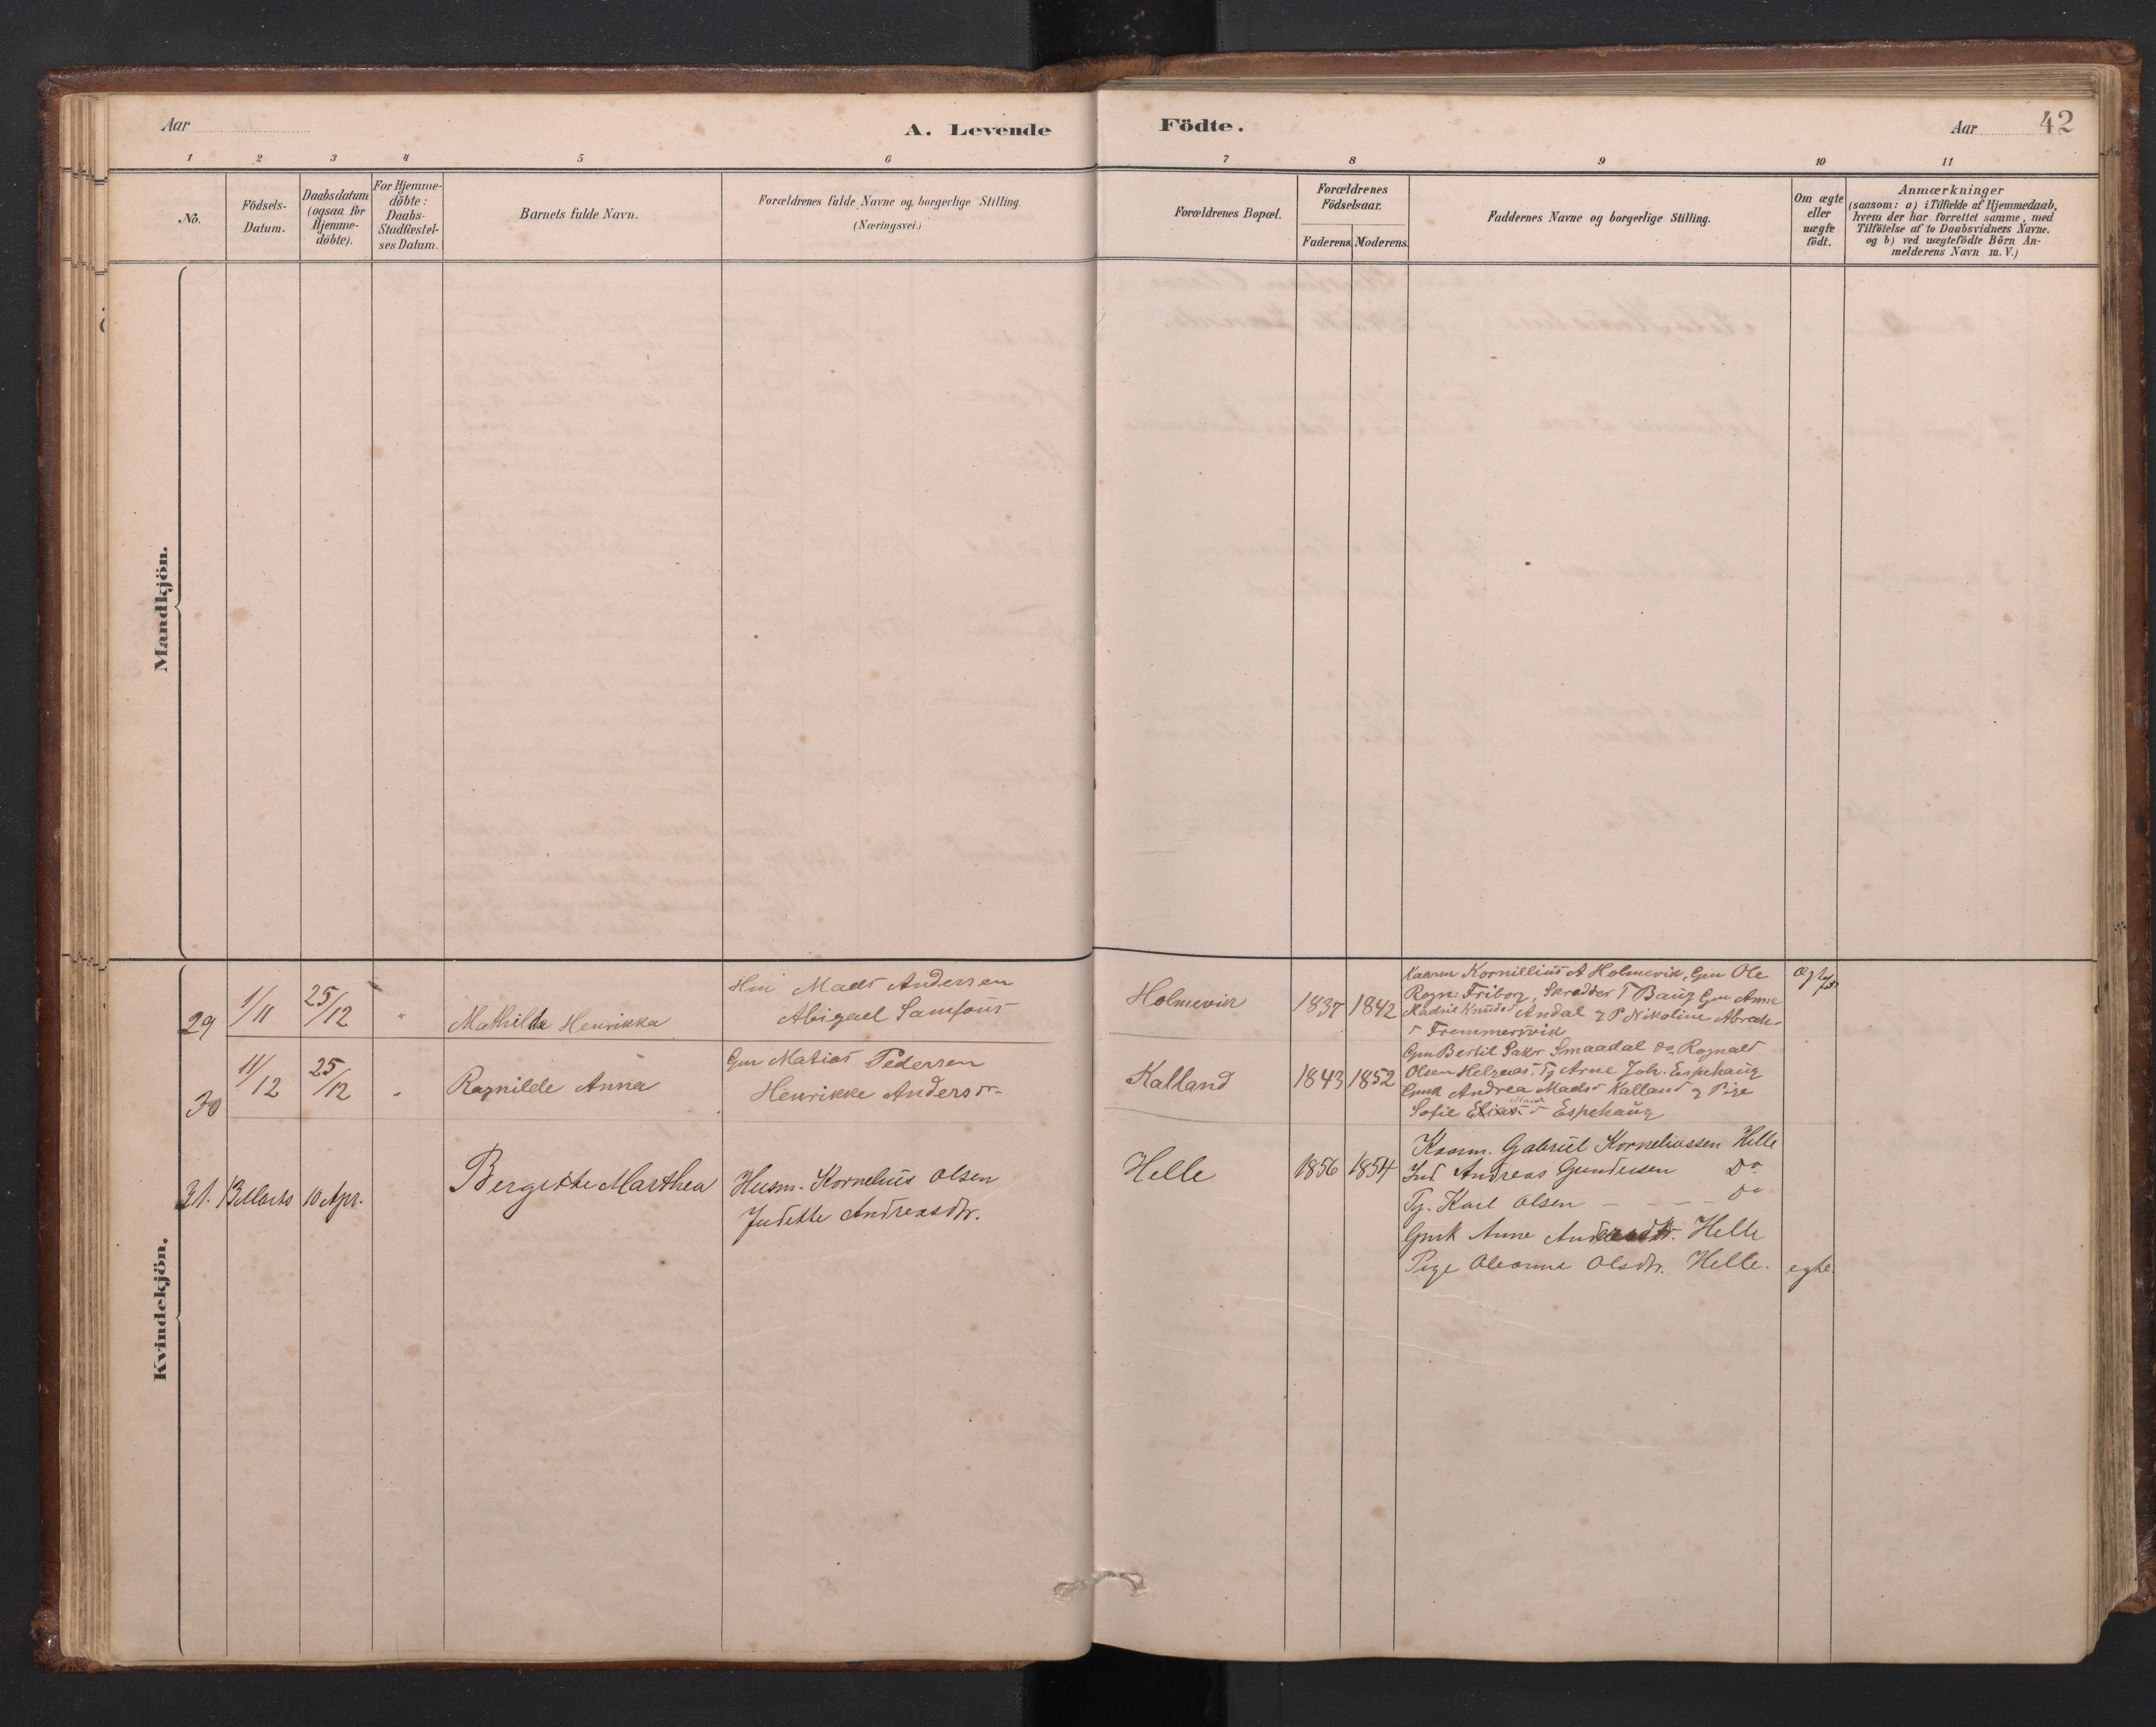 Aar
A. Levende
Födte.
Aar
42
1 2 3 4 5 6 7 8 9 10 11
No.
Födsels-
Datum.
Daabsdatum
(ogsaa for
Hjemme-
döbte).
For Hjemme-
döbte:
Daabs-
Stadfæstel-
ses Datum.
Barnets fulde Navn.
Forældrenes fulde Navne og borgerlige Stilling.
(Næringsvei.)
Forældrenes Bopæl.
Forældrenes
Födselsaar.
Faderens. Moderens.
Faddernes Navne og borgerlige Stilling.
Om ægte
eller
uægte
født.
Anmærkninger
(saasom: a) i Tilfælde af Hjemmedaab,
hvem der har forrettet samme, med
Tilföielse af to Daabsvidners Navne.
og b) ved uægtefödte Börn An-
melderens Navn m. V.)
Mandkjön.
Kvindekjön.
29 1/11 25/12 " Mathilde Henrikka
Mads Andersen
Abigael Samsons
Holmevik 1837 1842
Kaarm Kornillius A Holmevik, Gm Ole
Rogn: Friborg, Skrædder T Baug Gm Anne
Knudsd Andal & P Nikoline Abrah-
d Fremmersvik
30 11/12 25/12 " Ragnilde Anna
Gm Matias Pedersen
Henrikke Andersdr.
Kalland 1843 1852
Gm Bertil Sakr Smaadal Do Rognald
Olsen Helgeas. Tj Arne Joh. Espehaug
Gmk Andrea Madsd Kalland & Pige
Sofie Eliasd Espehaug
31. 13 Marts 10 Apr. Bergitte Marthea
Husm. Kornelius Olsen
Judithe Andreasdtr.
Helle 1856 1854
Kaarm. Gabriel Korneliussen Helle
Ind Andreas Gundersen Do
Tj. Karl Olsen - - - Do
Gmk Anne Andreasdtr. Helle
Pige Oleanne Olsdtr. Helle. egte.